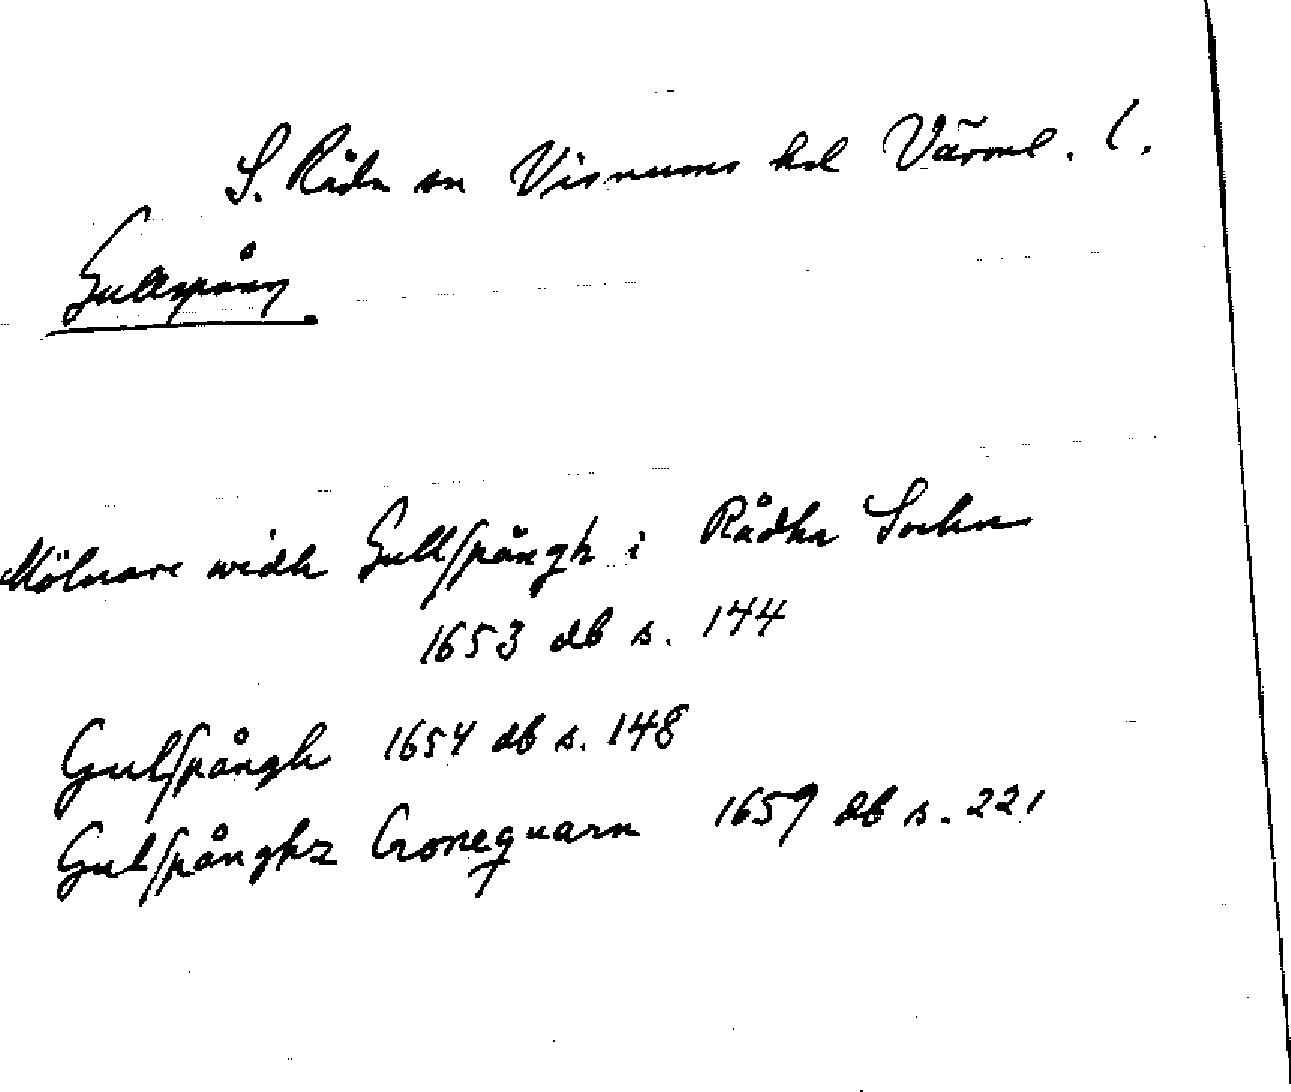 S. Råda sn Visnums hd Värml. l.
Gullspång
Mölnare widh Gullspångh i Rådha Sochn
1653 db s. 144
Gulspångh 1654 db s. 148
Gulspånghz Cronequarn 1659 db s. 221